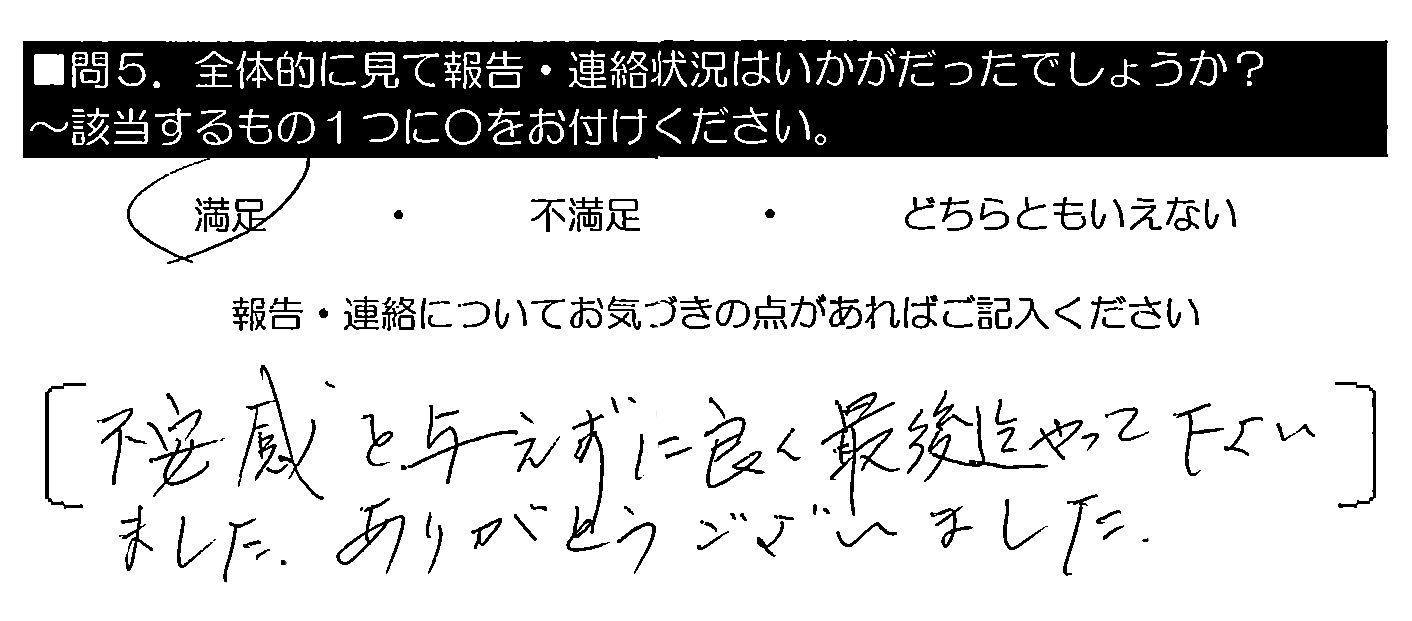 ■問５．全体的に見て報告・連絡状況はいかがだったでしょうか？
～該当するもの１つに〇をお付けください。
満足 ・ 不満足 ・ どちらともいえない
報告・連絡についてお気づきの点があればご記入ください
不安感を与えずに良く最後迄やって下さい
ました。ありがとうございました。